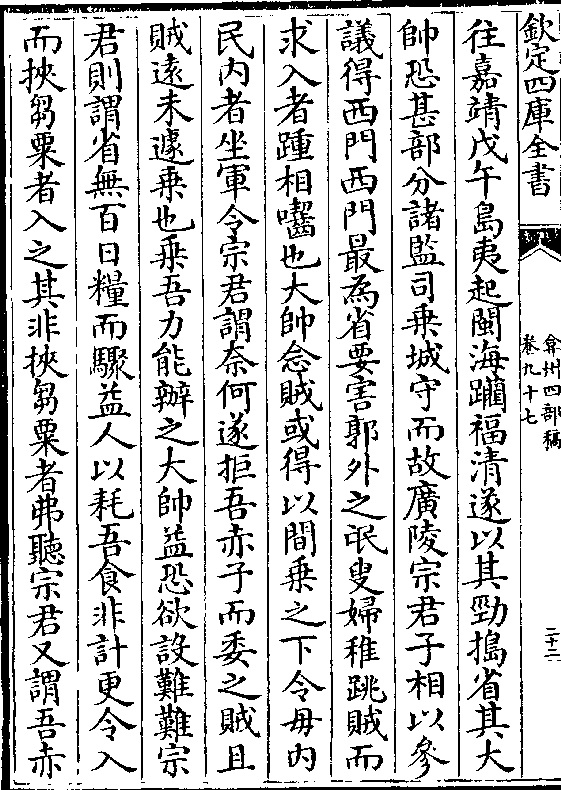 欽定四庫全書
弇州四部稿
卷九十七
二十二
往嘉靖戊午島夷起閩海躪福清遂以其勁搗省其大
帥恐甚部分諸監司乗城守而故廣陵宗君子相以參
議得西門西門最為省要害郭外之氓叟婦稚跳賊而
求入者踵相囓也大帥念賊或得以間乗之下令毋内
民内者坐軍令宗君謂奈何遂拒吾赤子而委之賊且
賊逺未遽乗也乗吾力能辦之大帥益恐欲設難難宗
君則謂省無百日糧而驟益人以耗吾食非計更令入
而挾芻粟者入之其非挾芻粟者弗聽宗君又謂吾赤